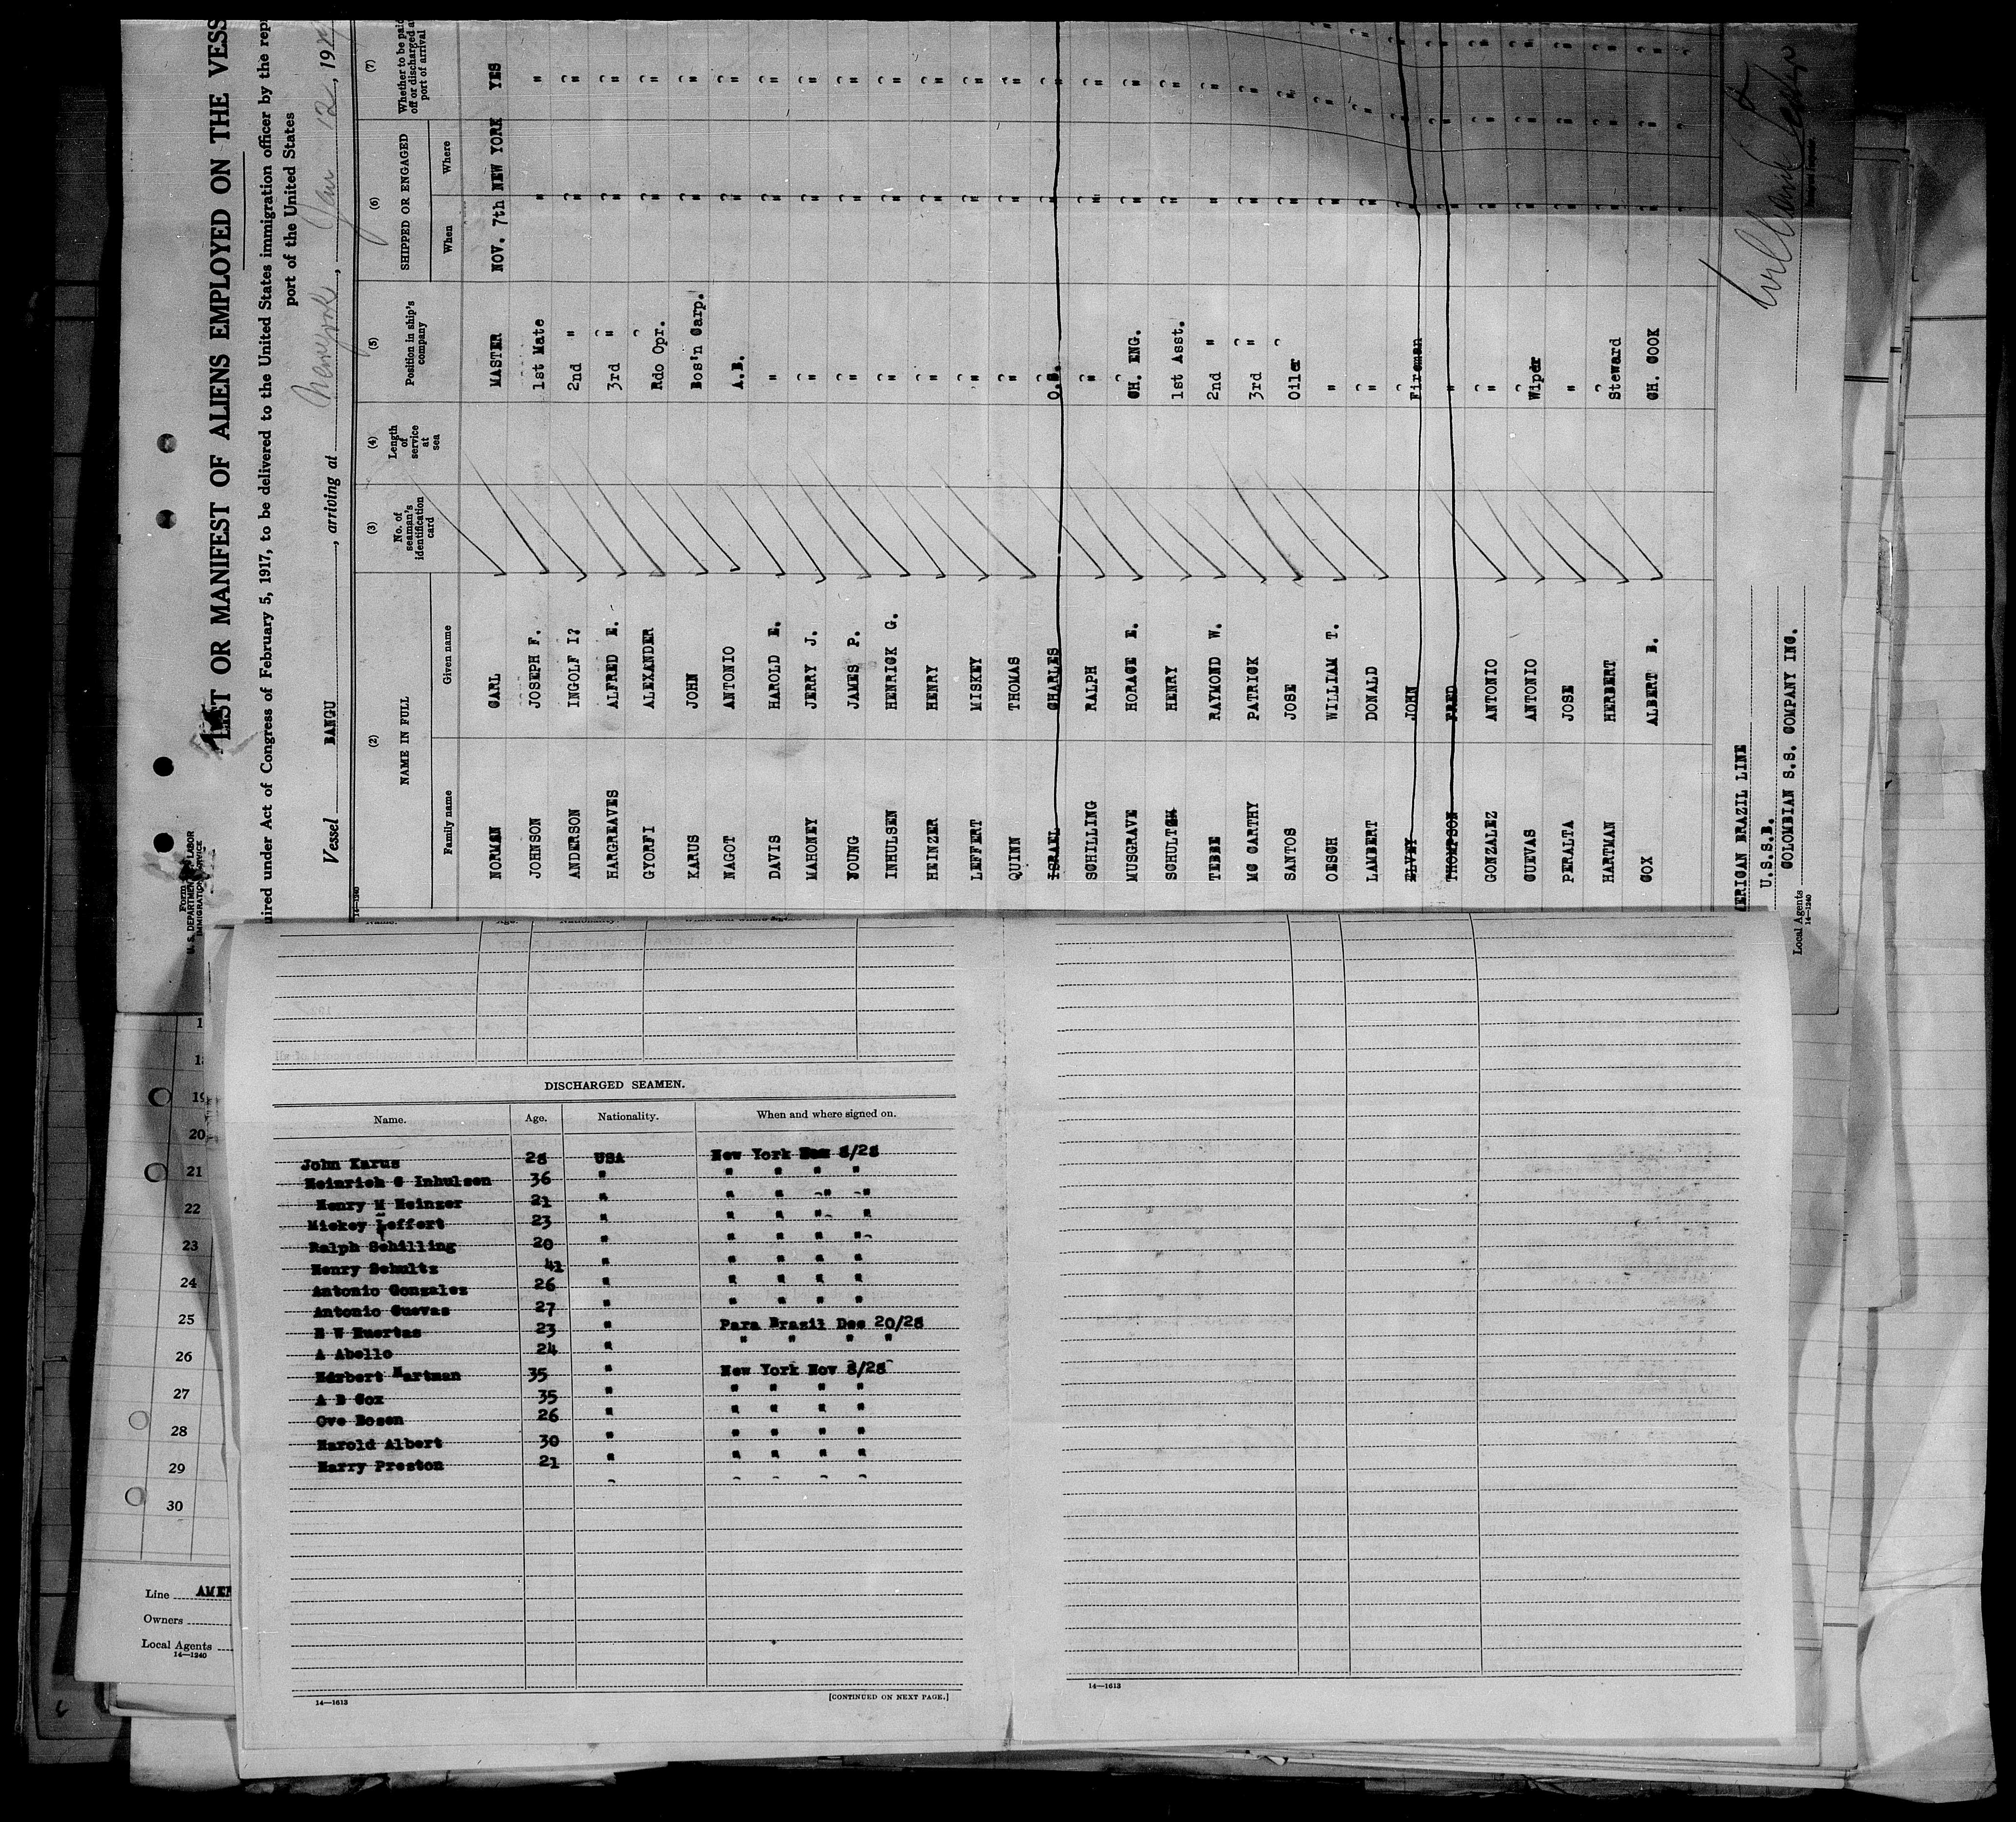 Form
U. S. DEPARTMENT LABOR
IMMIGRATION SERVICE
LIST OR MANIFEST OF ALIENS EMPLOYED ON THE VESS
uired under Act of Congress of February 5, 1917, to be delivered to the United States immigration officer by the rep
port of the United States
Vessel BANGU , arriving at New York , Jan 12 , 19
(2) (3) (4) (5) (6) (7)
NAME IN FULL No. of seaman's identification card Length of service at sea Position in ship's company SHIPPED OR ENGAGED Whether to be paid off or discharged at port of arrival
Family name Given name When Where
NORMAN CARL MASTER NOV. 7th NEW YORK YES
JOHNSON JOSEPH F. 1st Mate " "
ANDERSON INGOLF I? 2nd " " "
HARGREAVES ALFRED E. 3rd " " "
GYORFI ALEXANDER Rdo Opr. " "
KARUS JOHN Bos'n Carp. " "
NAGOT ANTONIO A.B. " "
DAVIS HAROLD E. " " "
MAHONEY JERRY J. " " "
YOUNG JAMES P. " " "
INHULSEN HENRICK G. " " "
HEINZER HENRY " " "
LEFFERT MISKEY " " "
QUINN THOMAS " " "
ISRAEL CHARLES O.S. " "
SCHILLING RALPH " " "
MUSGRAVE HORACE E. CH. ENG. " "
SCHULTZ HENRY 1st Asst. " "
TEBBE RAYMOND W. 2nd " " "
MC CARTHY PATRICK 3rd " " "
SANTOS JOSE Oiler " "
OESCH WILLIAM T. " " "
LAMBERT DONALD " " "
ELVEY JOHN Fireman " "
THOMPSON FRED " " "
GONZALEZ ANTONIO " " "
CUEVAS ANTONIO Wiper " "
PERALTA JOSE " " "
HARTMAN HERBERT Steward " "
COX ALBERT B. CH. COOK " "
MERICAN BRAZIL LINE
U.S.S.B.
COLOMBIAN S.S. COMPANY INC.
Local Agents
14—1240
DISCHARGED SEAMEN.
Name. Age. Nationality. When and where signed on.
John Karus 28 USA New York 8/28
Heinrich G Inhulsen 36 " " " " "
Henry M Heinzer 21 " " " " "
Mickey Leffert 23 " " " " "
Ralph Schilling 20 " " " " "
Henry Schultz 41 " " " " "
Antonio Gonzalez 26 " " " " "
Antonio Cuevas 27 " " " " "
E W Huertas 23 " Para Brazil Dec 20/28
A Abello 24 " " " " "
Herbert Hartman 35 " New York Nov 8/28
A B Cox 35 " " " " "
Ove Bosen 26 " " " " "
Harold Albert 30 " " " " "
Harry Preston 21 " " " " "
14—1613
[CONTINUED ON NEXT PAGE.]
14—1613
19
20
21
22
23
24
25
26
27
28
29
30
Line AMER
Owners
Local Agents
14—1240